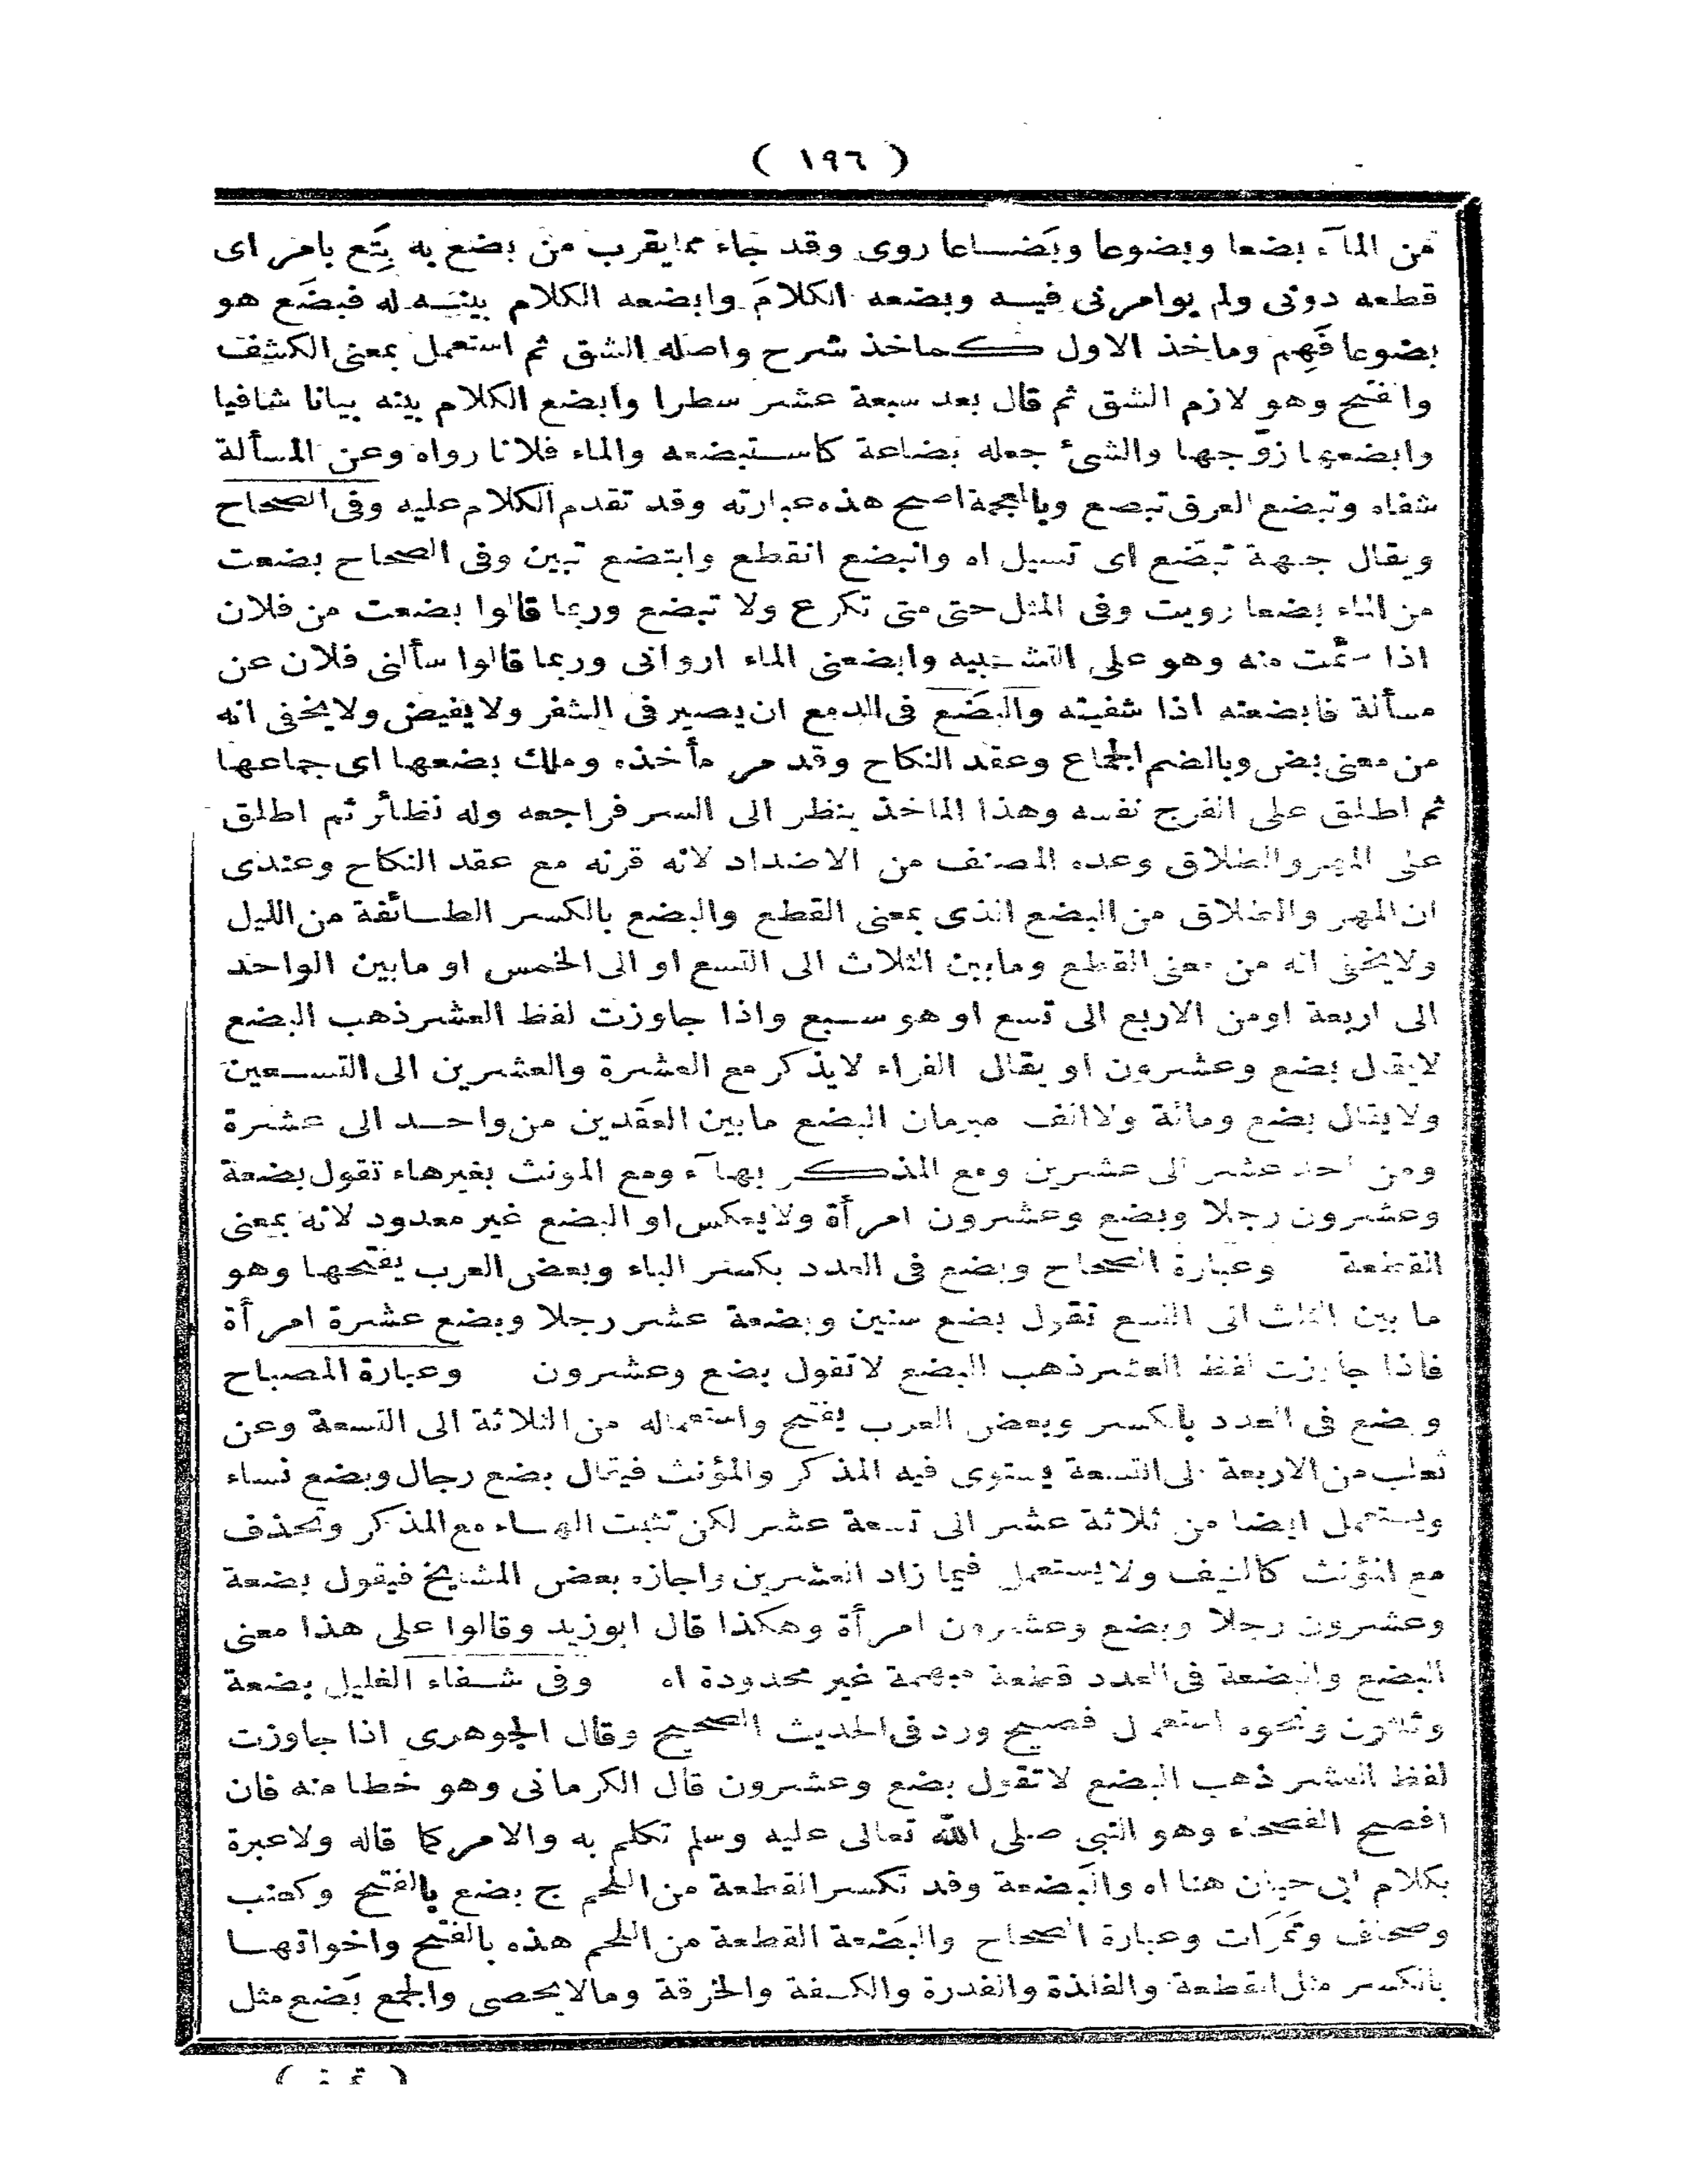 ( ١٩٦ )
من المآء بضعا وبضوعا وبَضاعا روى وقد جاء مما يقرب من بضع به بِتَع بامر اى
قطعه دونى ولم يوامرنى فيه وبضعه الكلامَ وابضعه الكلام بينه له فبضَع هو
بضوعا فَهِم وماخذ الاول كماخذ شرح واصله الشق ثم استعمل بمعنى الكشف
والفتح وهو لازم الشق ثم قال بعد سبعة عشر سطرا وابضع الكلام بينه بيانا شافيا
وابضعها زوّجها والشئ جعله بضاعة كاستبضعه والماء فلانا رواه وعن المسألة
شفاه وتبضع العرق تبصع وبالمعجمة اصح هذه عبارته وقد تقدم الكلام عليه وفى الصحاح
ويقال جبهة تبضَع اى تسيل اه وانبضع انقطع وابتضع تبين وفى الصحاح بضعت
من الماء بضعا رويت وفى المثل حتى متى تكرع ولا تبضع وربما قالوا بضعت من فلان
اذا سئمت منه وهو على التشبيه وابضعنى الماء اروانى وربما قالوا سألنى فلان عن
مسألة فابضعته اذا شفيته والبَضَع فى الدمع ان يصير فى الشفر ولا يفيض ولا يخفى انه
من معنى بض وبالضم الجماع وعقد النكاح وقد مر مأخذه وملك بضعها اى جماعها
ثم اطلق على الفرج نفسه وهذا الماخذ ينظر الى السر فراجعه وله نظائر ثم اطلق
على المهر والطلاق وعده المصنف من الاضداد لانه قرنه مع عقد النكاح وعندى
ان المهر والطلاق من البضع الذى بمعنى القطع والبضع بالكسر الطائفة من الليل
ولا يخفى انه من معنى القطع ومابين الثلاث الى التسع او الى الخمس او مابين الواحد
الى اربعة اومن الاربع الى تسع او هو سبع واذا جاوزت لفظ العشر ذهب البضع
لايقال بضع وعشرون او يقال الفراء لايذكر مع العشرة والعشرين الى التسعين
ولا يقال بضع ومائة ولا الف مبرمان البضع مابين العقَدين من واحد الى عشرة
ومن احد عشر الى عشرين ومع المذكر بهآء ومع المونث بغيرهاء تقول بضعة
وعشرون رجلا وبضع وعشرون امرأة ولا يعكس او البضع غير معدود لانه بمعنى
القطعة وعبارة الصحاح وبضع فى العدد بكسر الباء وبعض العرب يفتحها وهو
ما بين الثلاث الى التسع تقول بضع سنين وبضعة عشر رجلا وبضع عشرة امرأة
فاذا جاوزت لفظ العشر ذهب البضع لاتقول بضع وعشرون وعبارة المصباح
وبضع فى العدد بالكسر وبعض العرب يفتح واستعماله من الثلاثة الى التسعة وعن
ثعلب من الاربعة الى التسعة يستوى فيه المذكر والمؤنث فيقال بضع رجال وبضع نساء
ويستعمل ايضا من ثلاثة عشر الى تسعة عشر لكن تثبت الهاء مع المذكر وتحذف
مع المؤنث كالنيف ولا يستعمل فيما زاد العشرين واجازه بعض المشايخ فيقول بضعة
وعشرون رجلا وبضع وعشرون امرأة وهكذا قال ابوزيد وقالوا على هذا معنى
البضع والبضعة فى العدد قطعة مبهمة غير محدودة اه وفى شفاء الغليل بضعة
وثلاثون ونحوه استعمال فصيح ورد فى الحديث الصحيح وقال الجوهرى اذا جاوزت
لفظ العشر ذهب البضع لاتقول بضع وعشرون قال الكرمانى وهو خطا منه فان
افصح الفصحاء وهو النبى صلى الله تعالى عليه وسلم تكلم به والامر كما قاله ولاعبرة
بكلام ابى حيان هنا اه والبَضعة وقد تكسر القطعة من اللحم ج بضع بالفتح وكعنب
وصحاف وتمَرَات وعبارة الصحاح والبَضعة القطعة من اللحم هذه بالفتح واخواتها
بالكسر مثل القطعة والفلذة والفدرة والكسفة والخرقة ومالا يحصى والجمع بَضع مثل
( تمرة )